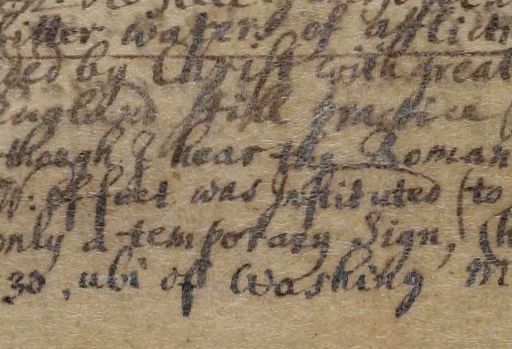 itter waters of afflict
ed by Christ with great
England still practice
though I hear the Roman
W. of feet was Instituted (to
only a temporary Sign, (h
30, ubi of Washing M